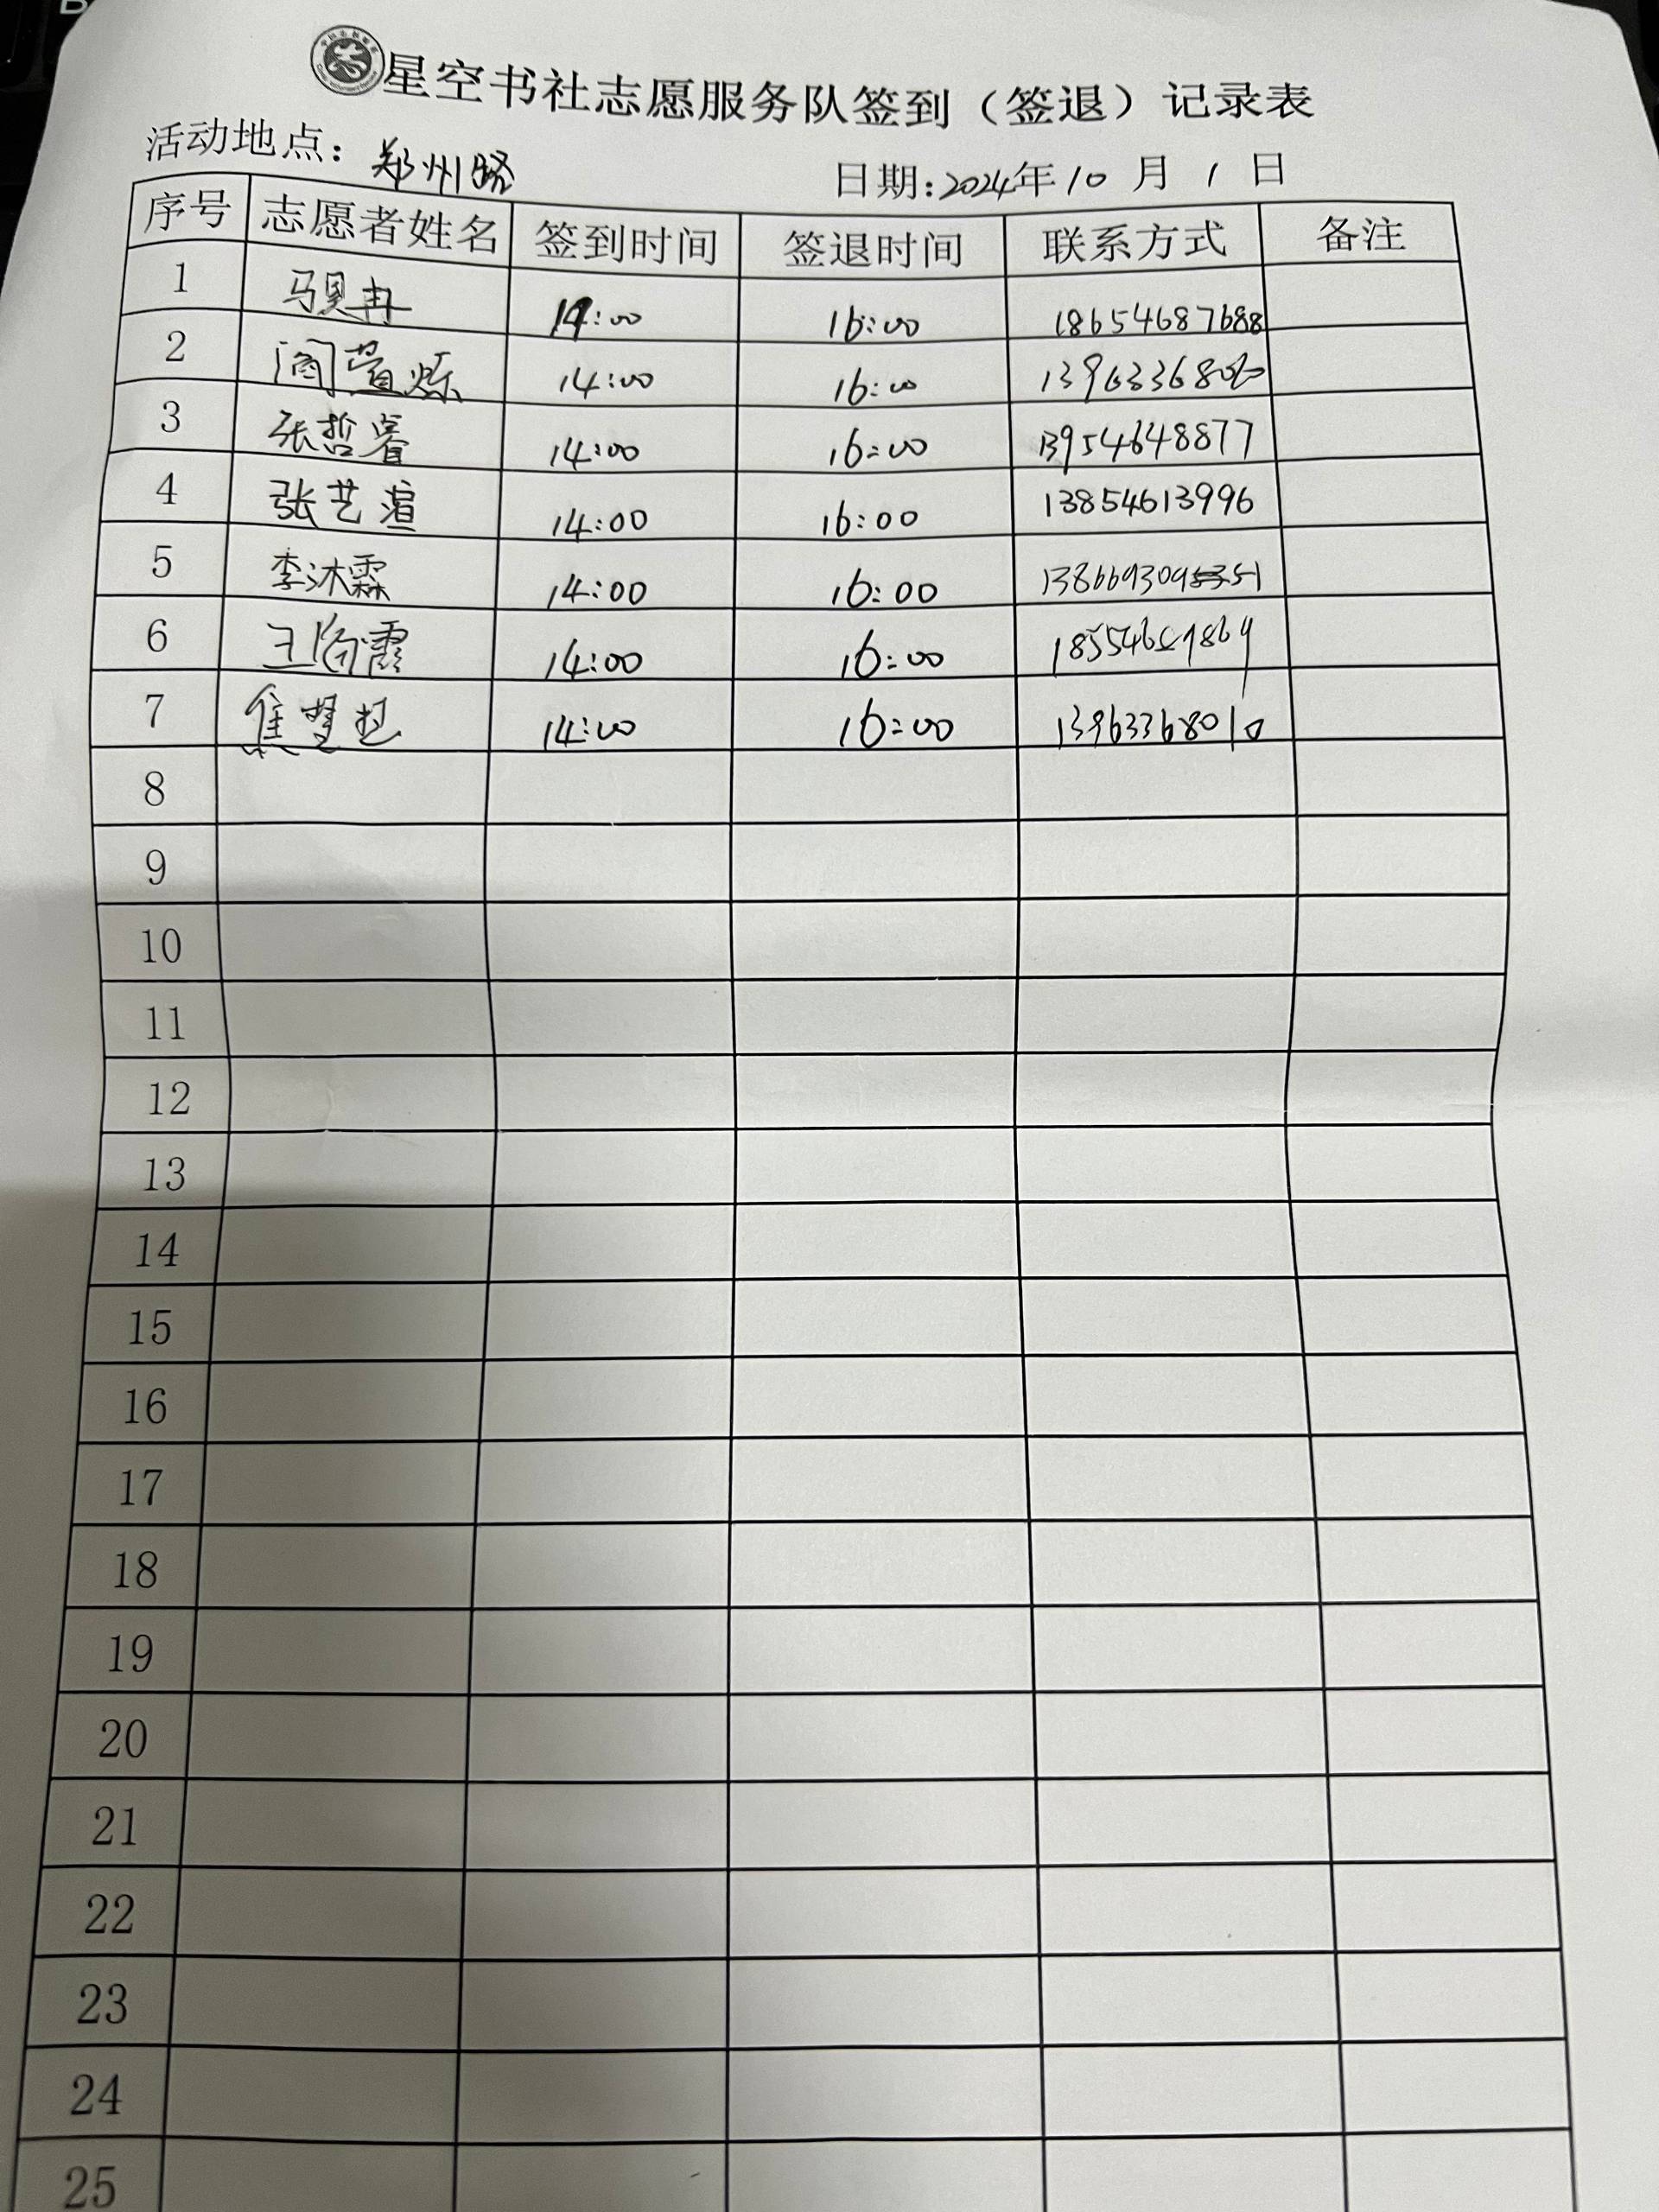 星空书社志愿服务队签到（签退）记录表
活动地点：郑州路 日期:2024年10月1日
序号 志愿者姓名 签到时间 签退时间 联系方式 备注
1 马 冉 14:00 16:00 18654687688
2 14:00 16:00
3 张哲睿 14:00 16:00 13954648877
4 张艺萱 14:00 16:00 13854613996
5 李沐霖 14:00 16:00
6 14:00 16:00
7 焦 14:00 16:00 13963368010
8
9
10
11
12
13
14
15
16
17
18
19
20
21
22
23
24
25